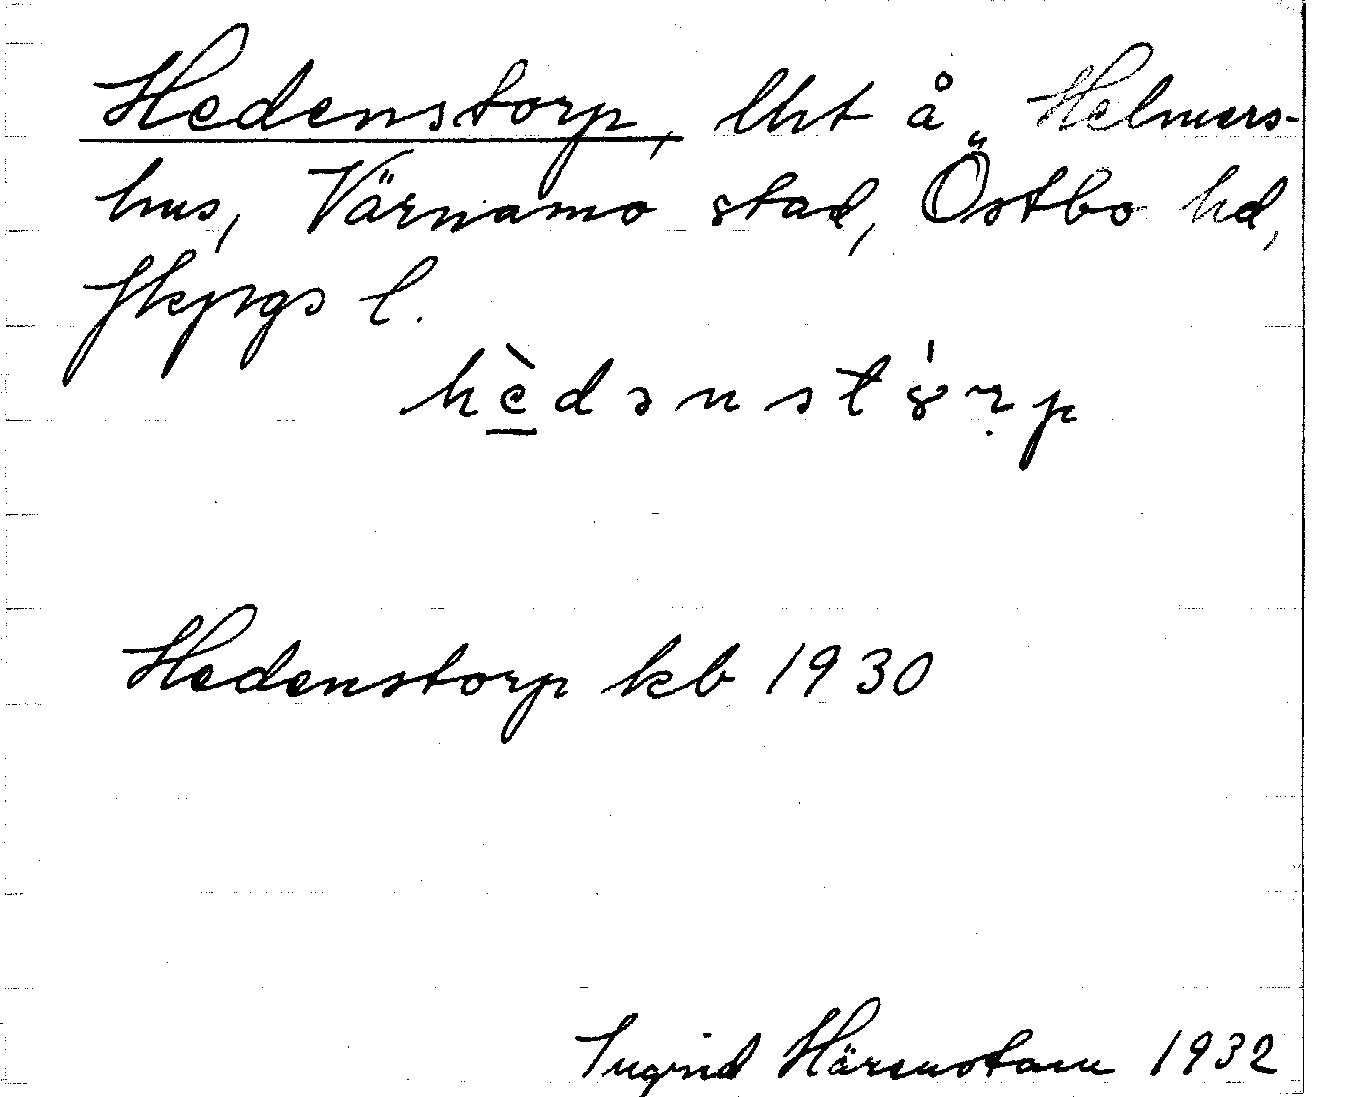 Hedenstorp, lht å Helmers-
hus, Värnamo stad, Östbo hd,
Jkpgs l.
Hedenstorp kb 1930
Ingrid Härenstam 1932